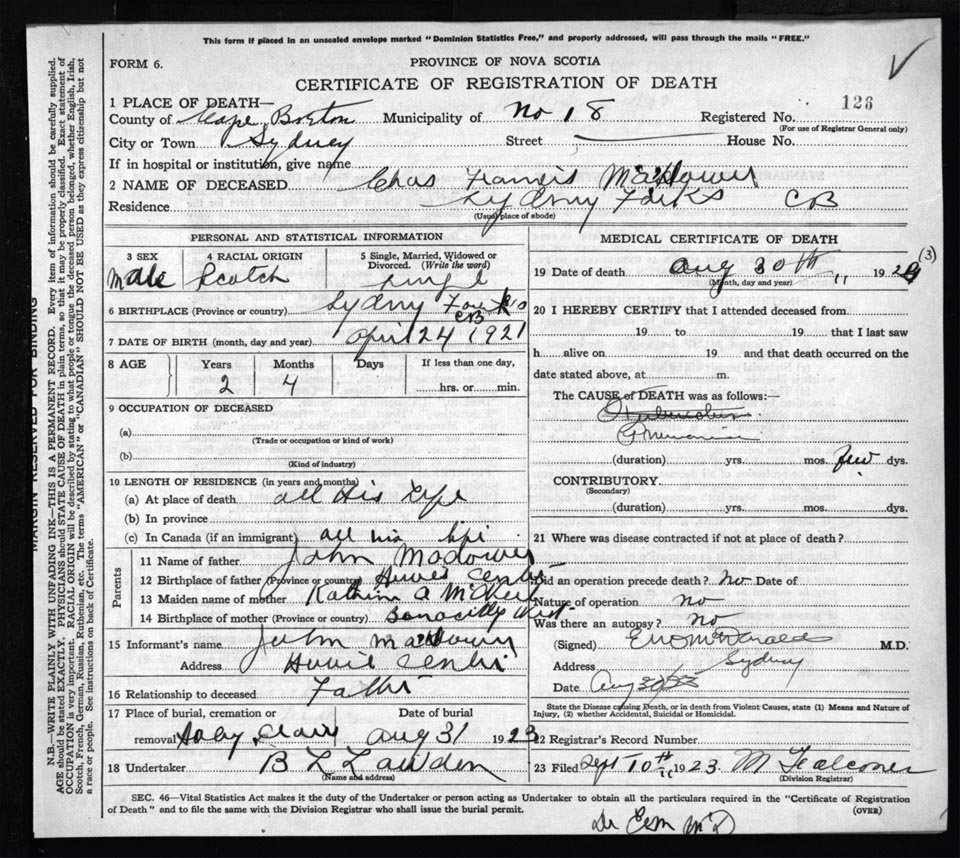 This form if placed in an unsealed envelope marked "Dominion Statistics Free," and properly addressed, will pass through the mails "FREE."
FORM 6.
PROVINCE OF NOVA SCOTIA
CERTIFICATE OF REGISTRATION OF DEATH
1 PLACE OF DEATH—
126
County of Cape Breton Municipality of No 18 Registered No.
(For use of Registrar General only)
City or Town Sydney Street House No.
If in hospital or institution, give name
2 NAME OF DECEASED Chas Francis
Residence Sydney Forks CB
(Usual place of abode)
PERSONAL AND STATISTICAL INFORMATION
3 SEX 4 RACIAL ORIGIN 5 Single, Married, Widowed or Divorced. (Write the word)
Male Scotch Single
6 BIRTHPLACE (Province or country) Sydney Forks CB
7 DATE OF BIRTH (month, day and year) April 24 1921
8 AGE Years Months Days If less than one day,
2 4 hrs. or min.
9 OCCUPATION OF DECEASED
(a)
(Trade or occupation or kind of work)
(b)
(Kind of industry)
10 LENGTH OF RESIDENCE (in years and months)
(a) At place of death all his life
(b) In province
(c) In Canada (if an immigrant) all his life
Parents
11 Name of father John
12 Birthplace of father (Province or country)
13 Maiden name of mother A
14 Birthplace of mother (Province or country)
15 Informant's name John
Address
16 Relationship to deceased Father
17 Place of burial, cremation or removal Date of burial
Aug 31 1923
18 Undertaker B L
(Name and address)
MEDICAL CERTIFICATE OF DEATH
19 Date of death Aug 30th 192 (3)
(Month, day and year)
20 I HEREBY CERTIFY that I attended deceased from
19 to 19 that I last saw
h alive on 19 and that death occurred on the
date stated above, at m.
The CAUSE of DEATH was as follows:—
Pneumonia
(duration) yrs. mos. few dys.
CONTRIBUTORY
(Secondary)
(duration) yrs. mos. dys.
21 Where was disease contracted if not at place of death?
Did an operation precede death? No Date of
Nature of operation no
Was there an autopsy? no
(Signed) McDonald M.D.
Address Sydney
Date Aug 30/23
State the Disease causing Death, or in death from Violent Causes, state (1) Means and Nature of Injury, (2) whether Accidental, Suicidal or Homicidal.
22 Registrar's Record Number
23 Filed Sept 10th 1923. M Falconer
(Division Registrar)
SEC. 46—Vital Statistics Act makes it the duty of the Undertaker or person acting as Undertaker to obtain all the particulars required in the "Certificate of Registration
of Death" and to file the same with the Division Registrar who shall issue the burial permit. (OVER)
MARGIN RESERVED FOR BINDING
N.B.—WRITE PLAINLY WITH UNFADING INK—THIS IS A PERMANENT RECORD. Every item of information should be carefully supplied.
AGE should be stated EXACTLY. PHYSICIANS should STATE CAUSE OF DEATH in plain terms, so that it may be properly classified. Exact statement of
OCCUPATION is very important. RACIAL ORIGIN will be described by stating to what people or tongue the deceased person belonged, whether English, Irish,
Scotch, French, German, Russian, Ruthenian, etc. The terms "AMERICAN" or "CANADIAN" SHOULD NOT BE USED as they express citizenship but not
a race or people. See instructions on back of Certificate.